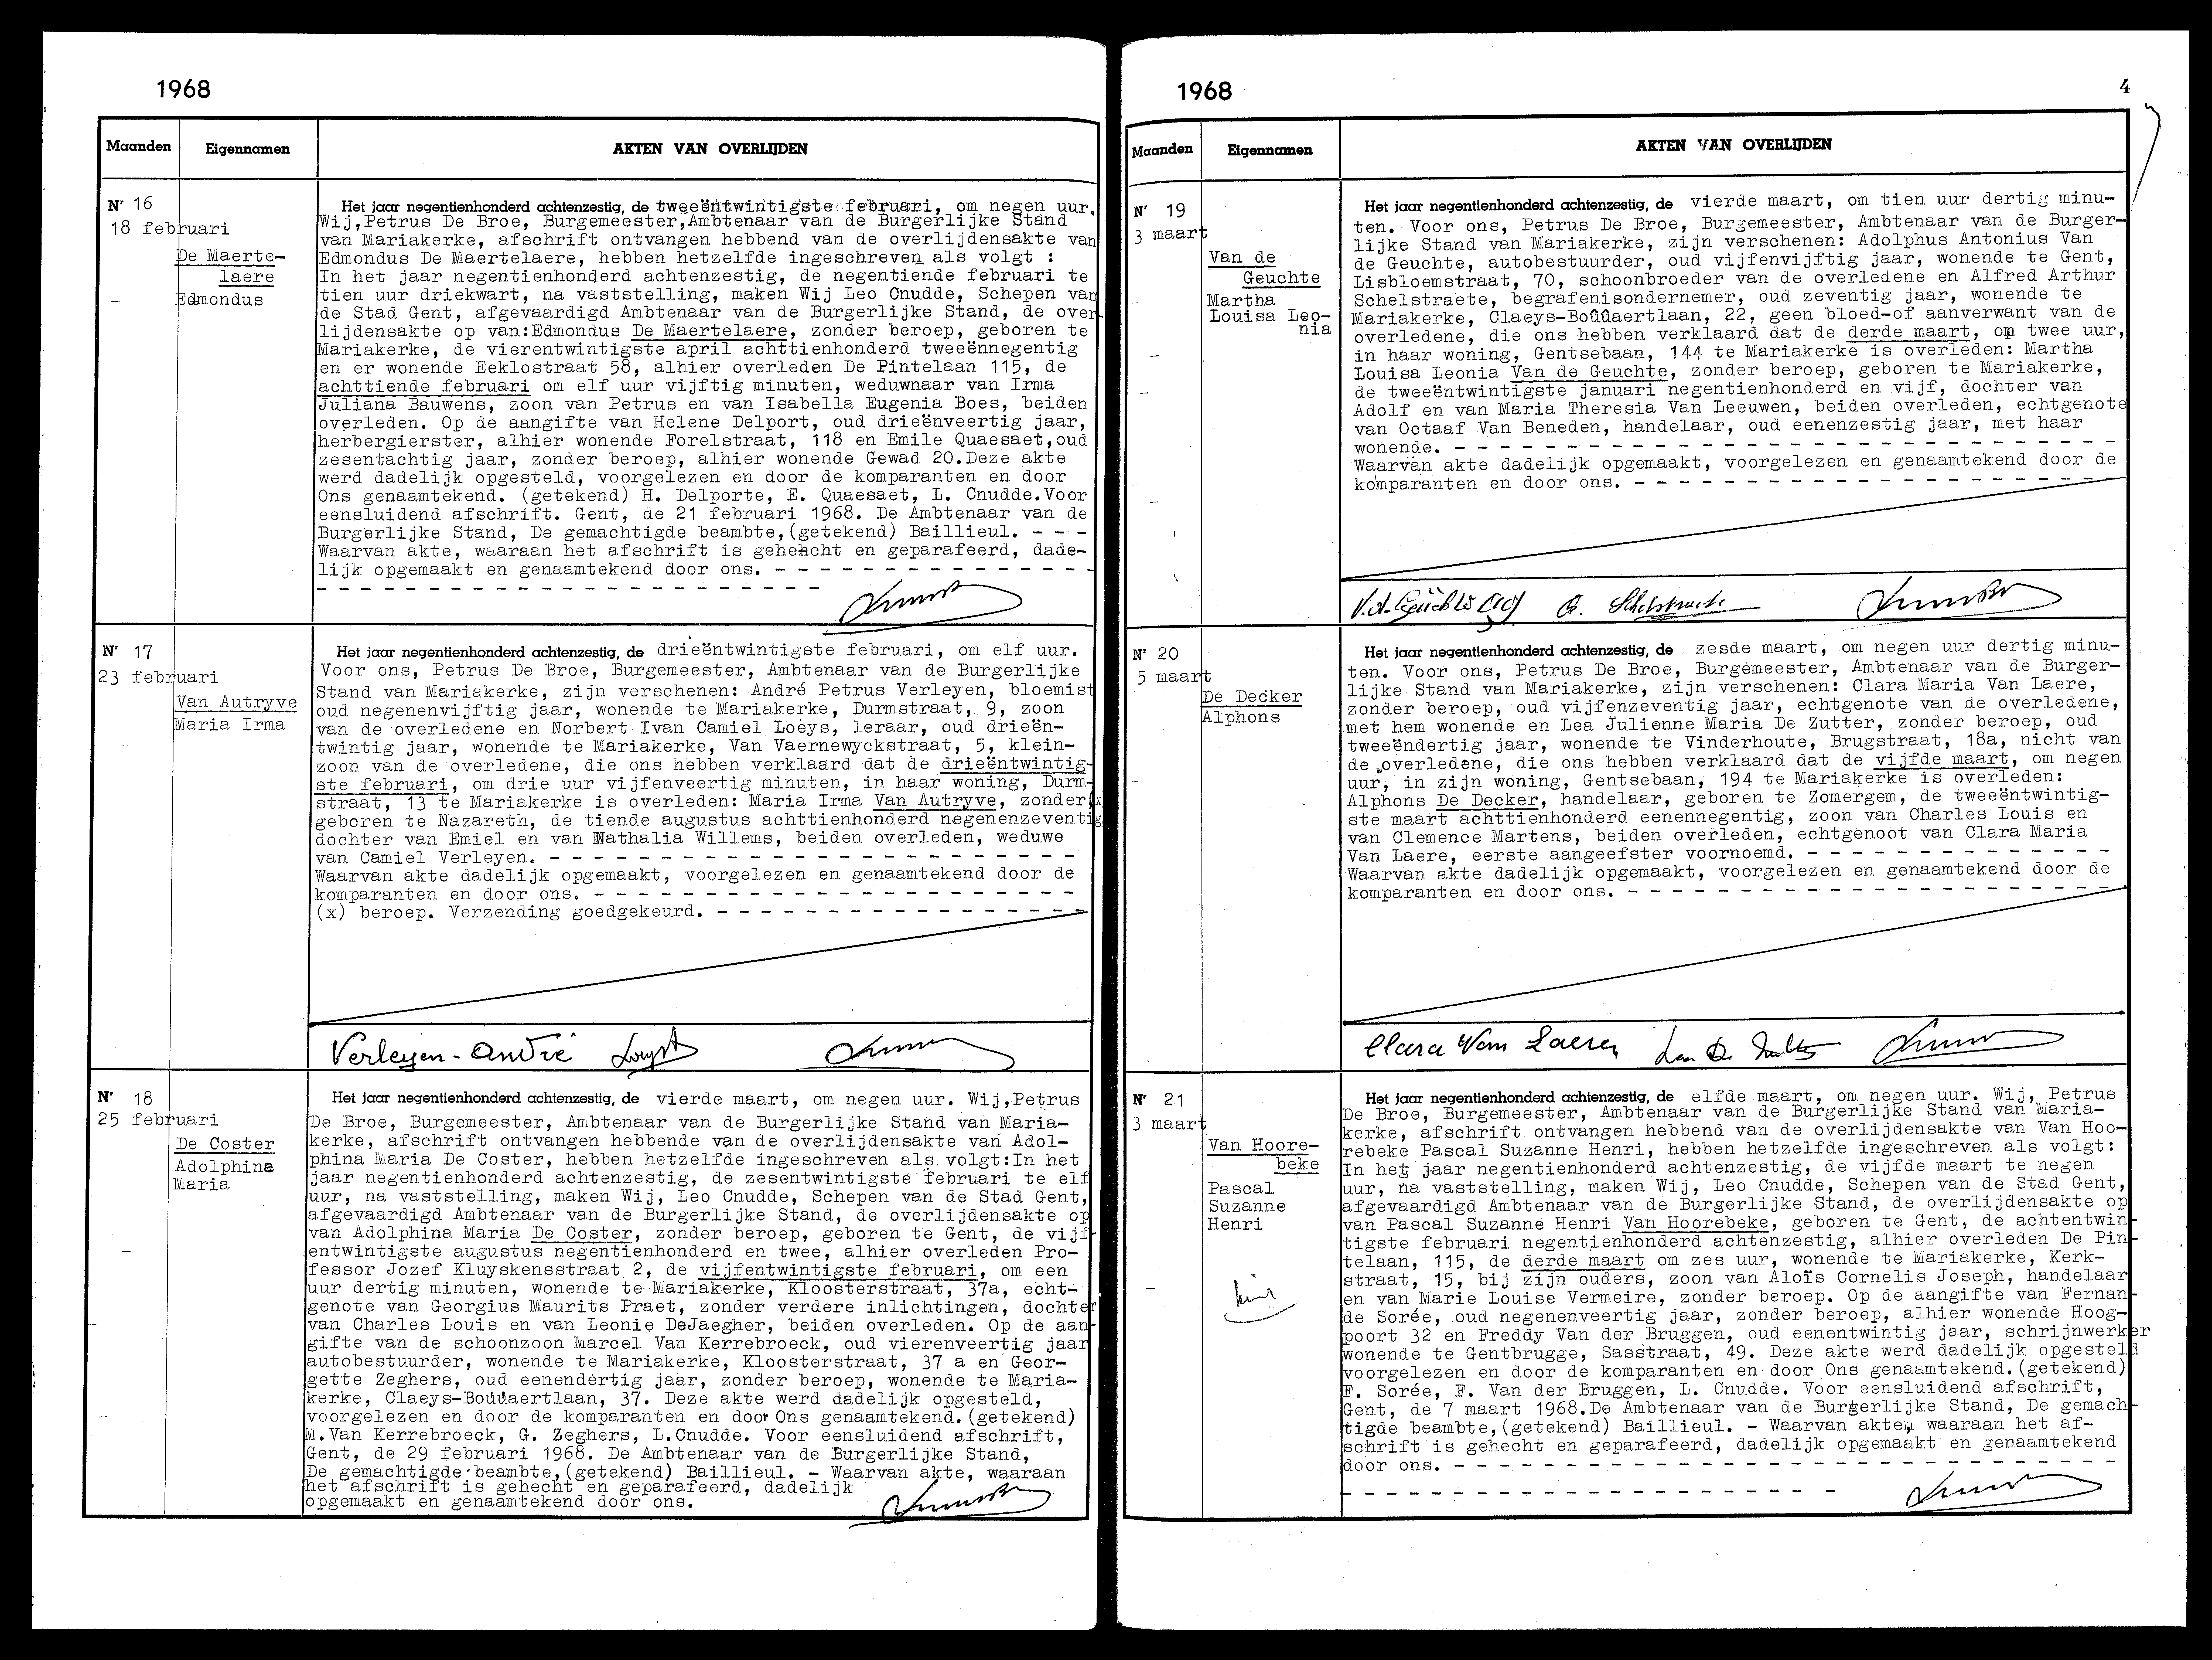 1968
Maanden Eigennamen AKTEN VAN OVERLIJDEN
Nr 16
18 februari
De Maerte-
laere
Edmondus
Het jaar negentienhonderd achtenzestig, de tweeëntwintigste februari, om negen uur.
Wij,Petrus De Broe, Burgemeester,Ambtenaar van de Burgerlijke Stand
van Mariakerke, afschrift ontvangen hebbend van de overlijdensakte van
Edmondus De Maertelaere, hebben hetzelfde ingeschreven als volgt :
In het jaar negentienhonderd achtenzestig, de negentiende februari te
tien uur driekwart, na vaststelling, maken Wij Leo Cnudde, Schepen van
de Stad Gent, afgevaardigd Ambtenaar van de Burgerlijke Stand, de over-
lijdensakte op van:Edmondus De Maertelaere, zonder beroep, geboren te
Mariakerke, de vierentwintigste april achttienhonderd tweeënnegentig
en er wonende Eeklostraat 58, alhier overleden De Pintelaan 115, de
achttiende februari om elf uur vijftig minuten, weduwnaar van Irma
Juliana Bauwens, zoon van Petrus en van Isabella Eugenia Boes, beiden
overleden. Op de aangifte van Helene Delport, oud drieënveertig jaar,
herbergierster, alhier wonende Forelstraat, 118 en Emile Quaesaet,oud
zesentachtig jaar, zonder beroep, alhier wonende Gewad 20.Deze akte
werd dadelijk opgesteld, voorgelezen en door de komparanten en door
Ons genaamtekend. (getekend) H. Delporte, E. Quaesaet, L. Cnudde.Voor
eensluidend afschrift. Gent, de 21 februari 1968. De Ambtenaar van de
Burgerlijke Stand, De gemachtigde beambte,(getekend) Baillieul. - - -
Waarvan akte, waaraan het afschrift is gehehcht en geparafeerd, dade-
lijk opgemaakt en genaamtekend door ons. - - - - - - - - - - - - - - -
- - - - - - - - - - - - - - - - - - - - - - - -
Nr 17
23 februari
Van Autryve
Maria Irma
Het jaar negentienhonderd achtenzestig, de drieëntwintigste februari, om elf uur.
Voor ons, Petrus De Broe, Burgemeester, Ambtenaar van de Burgerlijke
Stand van Mariakerke, zijn verschenen: André Petrus Verleyen, bloemist
oud negenenvijftig jaar, wonende te Mariakerke, Durmstraat, 9, zoon
van de overledene en Norbert Ivan Camiel Loeys, leraar, oud drieën-
twintig jaar, wonende te Mariakerke, Van Vaernewyckstraat, 5, klein-
zoon van de overledene, die ons hebben verklaard dat de drieëntwintig-
ste februari, om drie uur vijfenveertig minuten, in haar woning, Durm-
straat, 13 te Mariakerke is overleden: Maria Irma Van Autryve, zonder(x
geboren te Nazareth, de tiende augustus achttienhonderd negenenzeventig
dochter van Emiel en van Nathalia Willems, beiden overleden, weduwe
van Camiel Verleyen. - - - - - - - - - - - - - - - - - - - - - - - -
Waarvan akte dadelijk opgemaakt, voorgelezen en genaamtekend door de
komparanten en door ons. - - - - - - - - - - - - - - - - - - - - - -
(x) beroep. Verzending goedgekeurd. - - - - - - - - - - - - - - - -
Verleyen-André Loeys
Nr 18
25 februari
De Coster
Adolphina
Maria
Het jaar negentienhonderd achtenzestig, de vierde maart, om negen uur. Wij,Petrus
De Broe, Burgemeester, Ambtenaar van de Burgerlijke Stand van Maria-
kerke, afschrift ontvangen hebbende van de overlijdensakte van Adol-
phina Maria De Coster, hebben hetzelfde ingeschreven als volgt:In het
jaar negentienhonderd achtenzestig, de zesentwintigste februari te elf
uur, na vaststelling, maken Wij, Leo Cnudde, Schepen van de Stad Gent,
afgevaardigd Ambtenaar van de Burgerlijke Stand, de overlijdensakte op
van Adolphina Maria De Coster, zonder beroep, geboren te Gent, de vijf-
entwintigste augustus negentienhonderd en twee, alhier overleden Pro-
fessor Jozef Kluyskensstraat 2, de vijfentwintigste februari, om een
uur dertig minuten, wonende te Mariakerke, Kloosterstraat, 37a, echt-
genote van Georgius Maurits Praet, zonder verdere inlichtingen, dochter
van Charles Louis en van Leonie DeJaegher, beiden overleden. Op de aan-
gifte van de schoonzoon Marcel Van Kerrebroeck, oud vierenveertig jaar
autobestuurder, wonende te Mariakerke, Kloosterstraat, 37 a en Geor-
gette Zeghers, oud eenendertig jaar, zonder beroep, wonende te Maria-
kerke, Claeys-Boùùaertlaan, 37. Deze akte werd dadelijk opgesteld,
voorgelezen en door de komparanten en door Ons genaamtekend.(getekend)
M.Van Kerrebroeck, G. Zeghers, L.Cnudde. Voor eensluidend afschrift,
Gent, de 29 februari 1968. De Ambtenaar van de Burgerlijke Stand,
De gemachtigde beambte,(getekend) Baillieul. - Waarvan akte, waaraan
het afschrift is gehecht en geparafeerd, dadelijk
opgemaakt en genaamtekend door ons.
1968 4
Maanden Eigennamen AKTEN VAN OVERLIJDEN
Nr 19
3 maart
Van de
Geuchte
Martha
Louisa Leo-
nia
Het jaar negentienhonderd achtenzestig, de vierde maart, om tien uur dertig minu-
ten. Voor ons, Petrus De Broe, Burgemeester, Ambtenaar van de Burger-
lijke Stand van Mariakerke, zijn verschenen: Adolphus Antonius Van
de Geuchte, autobestuurder, oud vijfenvijftig jaar, wonende te Gent,
Lisbloemstraat, 70, schoonbroeder van de overledene en Alfred Arthur
Schelstraete, begrafenisondernemer, oud zeventig jaar, wonende te
Mariakerke, Claeys-Boûûaertlaan, 22, geen bloed-of aanverwant van de
overledene, die ons hebben verklaard dat de derde maart, om twee uur,
in haar woning, Gentsebaan, 144 te Mariakerke is overleden: Martha
Louisa Leonia Van de Geuchte, zonder beroep, geboren te Mariakerke,
de tweeëntwintigste januari negentienhonderd en vijf, dochter van
Adolf en van Maria Theresia Van Leeuwen, beiden overleden, echtgenote
van Octaaf Van Beneden, handelaar, oud eenenzestig jaar, met haar
wonende. - - - - - - - - - - - - - - - - - - - - - - - - - - - - - -
Waarvan akte dadelijk opgemaakt, voorgelezen en genaamtekend door de
komparanten en door ons. - - - - - - - - - - - - - - - - - - - - - -
A. Schelstraete
Nr 20
5 maart
De Decker
Alphons
Het jaar negentienhonderd achtenzestig, de zesde maart, om negen uur dertig minu-
ten. Voor ons, Petrus De Broe, Burgemeester, Ambtenaar van de Burger-
lijke Stand van Mariakerke, zijn verschenen: Clara Maria Van Laere,
zonder beroep, oud vijfenzeventig jaar, echtgenote van de overledene,
met hem wonende en Lea Julienne Maria De Zutter, zonder beroep, oud
tweeëndertig jaar, wonende te Vinderhoute, Brugstraat, 18a, nicht van
de overledene, die ons hebben verklaard dat de vijfde maart, om negen
uur, in zijn woning, Gentsebaan, 194 te Mariakerke is overleden:
Alphons De Decker, handelaar, geboren te Zomergem, de tweeëntwintig-
ste maart achttienhonderd eenennegentig, zoon van Charles Louis en
van Clemence Martens, beiden overleden, echtgenoot van Clara Maria
Van Laere, eerste aangeefster voornoemd. - - - - - - - - - - - - - -
Waarvan akte dadelijk opgemaakt, voorgelezen en genaamtekend door de
komparanten en door ons. - - - - - - - - - - - - - - - - - - - - - -
Clara Van Laere Lea De Zutter
Nr 21
3 maart
Van Hoore-
beke
Pascal
Suzanne
Henri
Het jaar negentienhonderd achtenzestig, de elfde maart, om negen uur. Wij, Petrus
De Broe, Burgemeester, Ambtenaar van de Burgerlijke Stand van Maria-
kerke, afschrift ontvangen hebbend van de overlijdensakte van Van Hoo-
rebeke Pascal Suzanne Henri, hebben hetzelfde ingeschreven als volgt:
In het jaar negentienhonderd achtenzestig, de vijfde maart te negen
uur, na vaststelling, maken Wij, Leo Cnudde, Schepen van de Stad Gent,
afgevaardigd Ambtenaar van de Burgerlijke Stand, de overlijdensakte op
van Pascal Suzanne Henri Van Hoorebeke, geboren te Gent, de achtentwin-
tigste februari negentienhonderd achtenzestig, alhier overleden De Pin-
telaan, 115, de derde maart om zes uur, wonende te Mariakerke, Kerk-
straat, 15, bij zijn ouders, zoon van Aloïs Cornelis Joseph, handelaar
en van Marie Louise Vermeire, zonder beroep. Op de aangifte van Fernan-
de Sorée, oud negenenveertig jaar, zonder beroep, alhier wonende Hoog-
poort 32 en Freddy Van der Bruggen, oud eenentwintig jaar, schrijnwerker
wonende te Gentbrugge, Sasstraat, 49. Deze akte werd dadelijk opgesteld
voorgelezen en door de komparanten en door Ons genaamtekend.(getekend)
F. Sorée, F. Van der Bruggen, L. Cnudde. Voor eensluidend afschrift,
Gent, de 7 maart 1968.De Ambtenaar van de Burgerlijke Stand, De gemach-
tigde beambte,(getekend) Baillieul. - Waarvan akte, waaraan het af-
schrift is gehecht en geparafeerd, dadelijk opgemaakt en genaamtekend
door ons. - - - - - - - - - - - - - - - - - - - - - - - - - - - - -
- - - - - - - - - - - - - - - - - - - - -